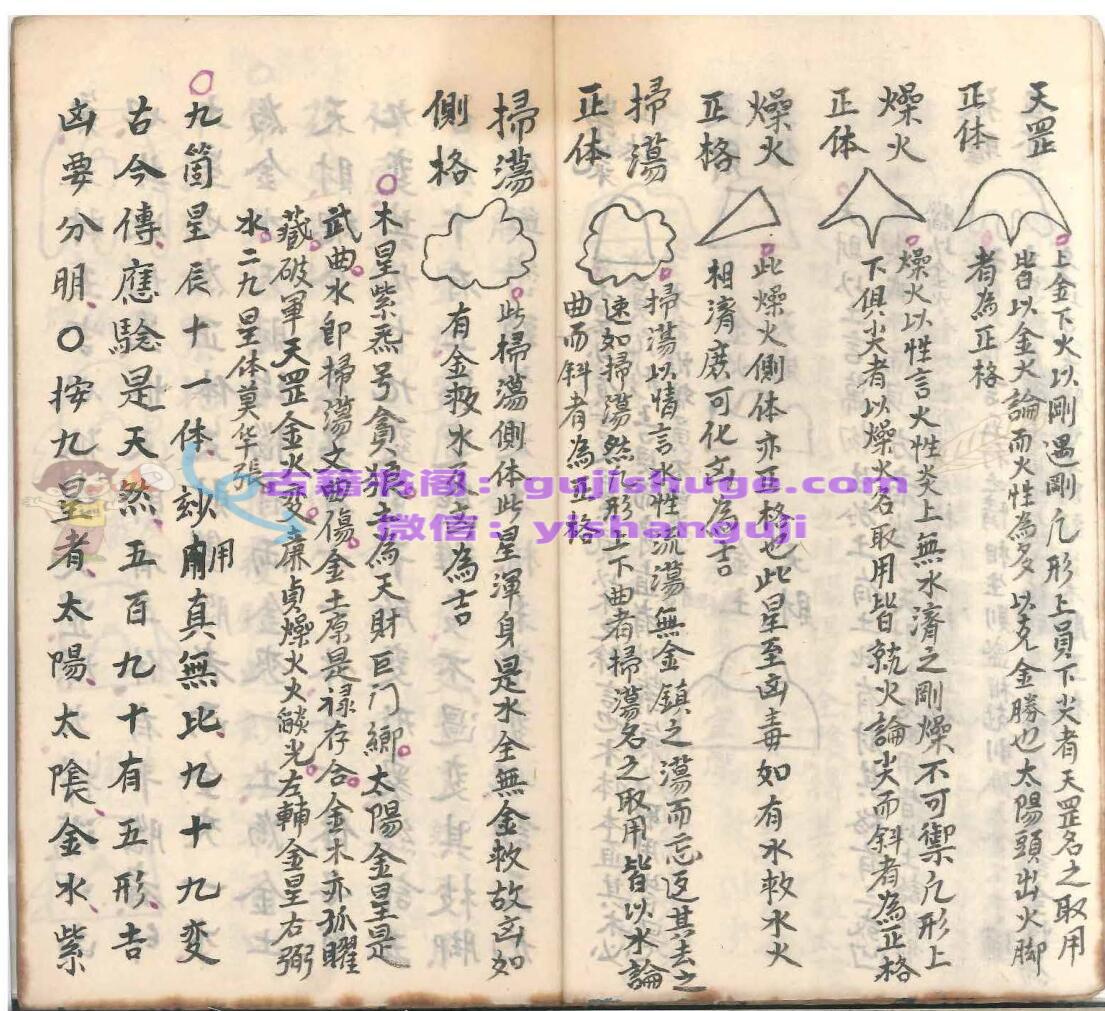 天罡
正体
上金下火以剛遇剛凢形上員下尖者天罡名之取用
皆以金火論而火性為多以克金勝也太陽頭出火脚
者為正格
燥火
正体
燥火以性言火性炎上無水濟之剛燥不可禦凢形上
下俱尖者以燥火名取用皆就火論尖而斜者為正格
燥火
正格
此燥火側体亦正格也此星至凶毒如有水救水火
相濟庶可化凶為吉
掃蕩
正体
掃蕩以情言水性流蕩無金鎮之蕩而忘返其去之
速如掃蕩然凢形上下曲者掃蕩名之取用皆以水論
曲而斜者為正格
掃蕩
側格
此掃蕩側体此星渾身是水全無金救故凶如
有金救水反吉為吉
木星紫炁号貪狼土為天財巨门鄉太陽金星是
武曲水即掃蕩文曲傷金土原是禄存合金木亦孤曜
藏破軍天罡金火变廉貞燥火火燄光左輔金星右弼
水二九星体莫华張
九箇星辰十一体妙用真無比九十九变
古今傳應驗是天然五百九十有五形吉
凶要分明〇按九星者太陽太陰金水紫
古籍书阁：gujishuge.com
微信：yishanguji